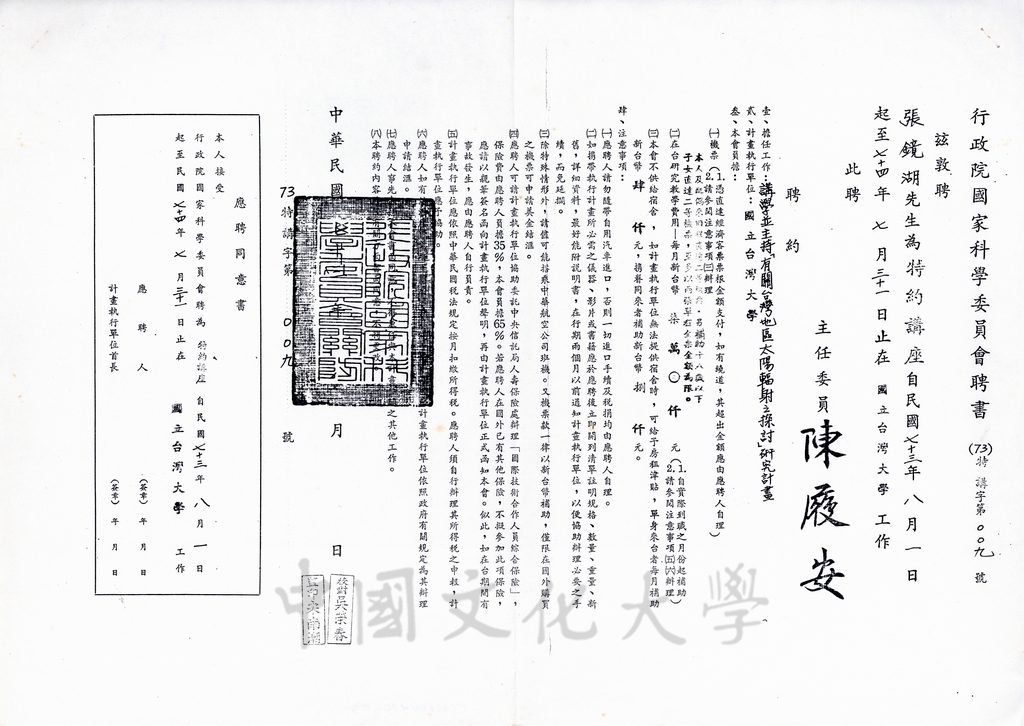 行政院國家科學委員會聘書
(73)特講字第00九號
茲敦聘
張鏡湖先生為特約講座自民國七十三年八月一日
起至七十四年七月三十一日止在國立台灣大學工作
此聘
主任委員 陳履安
聘約
壹、擔任工作：講學並主持「有關台灣地區太陽輻射之探討」研究計畫
貳、計畫執行單位：國立台灣大學
參、本會負擔：
(一)機票(1.憑直達經濟客票票根金額支付，如有繞道，其超出金額應由應聘人自理)
(2.請參閱注意事項(三)辦理
(二)在台研究教學費用—每月新台幣 柒萬0仟元(1.自實際到職之月份起補助
2.請參閱注意事項(五)(六)辦理)
(三)本會不供給宿舍，如計畫執行單位無法提供宿舍時，可給予房租津貼，單身來台者每月補助
新台幣肆仟元，攜眷同來者補助新台幣捌仟元。
肆、注意事項：
(一)應聘人請勿隨帶自用汽車進口，否則一切進口手續及稅捐均由應聘人自理。
(二)如攜帶執行計畫所必需之儀器、影片或書籍應於應聘後立即開列清單註明規格、數量、重量、新
舊，詳細資料，最好能附說明書，在行期兩個月以前通知計畫執行單位，以便協助辦理必要之手
續，而免延擱。
(三)除特殊情形外，請儘可能搭乘中華航空公司班機。又機票款一律以新台幣補助，僅限在國外購買
之機票可申請美金結滙。
(四)應聘人可請計畫執行單位協助委託中央信託局人壽保險處辦理「國際技術合作人員綜合保險」，
保險費由應聘人員擔35%，本會員擔65%。若應聘人在國外已有其他保險，不擬參加此項保險，
應請以親筆簽名函向計畫執行單位聲明，再由計畫執行單位正式函知本會。似此，如在台期間有
事故發生，應由應聘人自行負責。
(五)計畫執行單位應依照中華民國稅法規定按月扣繳所得稅。應聘人須自行辦理其所得稅之申報，計
畫執行單位應予協助。
(六)應聘人如有
計畫執行單位依照政府有關規定為其辦理
申請結滙。
(七)應聘人事先
之其他工作。
(八)本聘約內容
中華民國 年 月 日
73特講字第00九號
校對吳榮春
應聘同意書
本人接受
行政院國家科學委員會聘為特約講座自民國七十三年八月一日
起至民國七十四年七月三十一日止在國立台灣大學工作
應聘人 (簽章) 年 月 日
計畫執行單位首長 (簽章) 年 月 日
中國文化大學